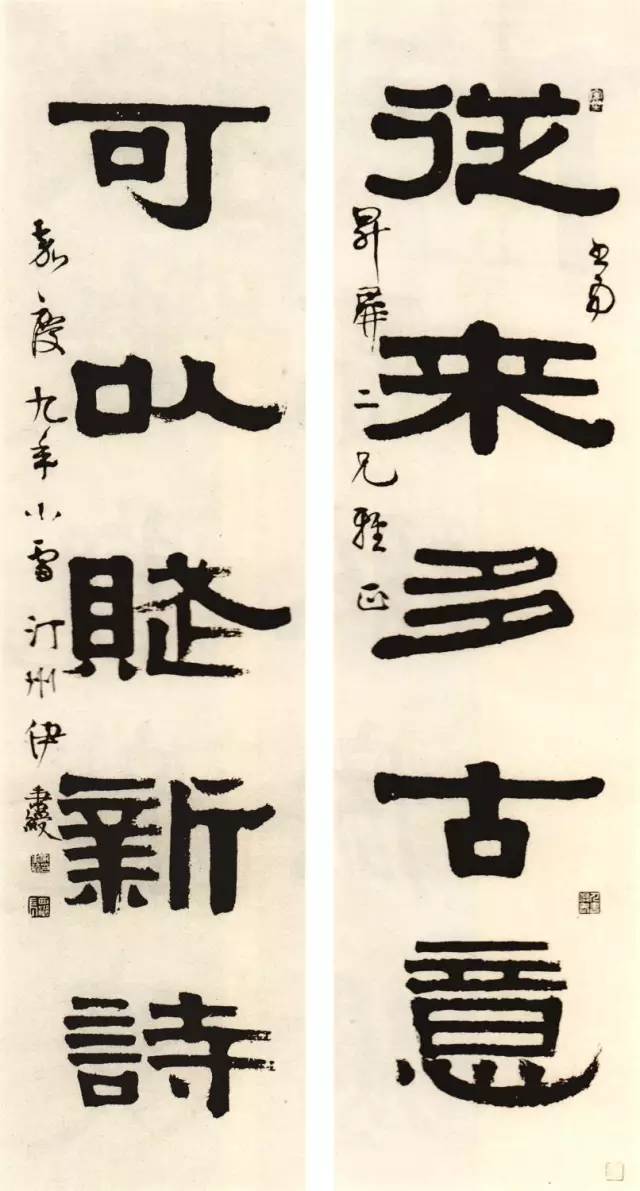 書為
從來多古意
昇屏二兄雅正
可以賦新詩
嘉慶九年小雪汀州伊秉綬